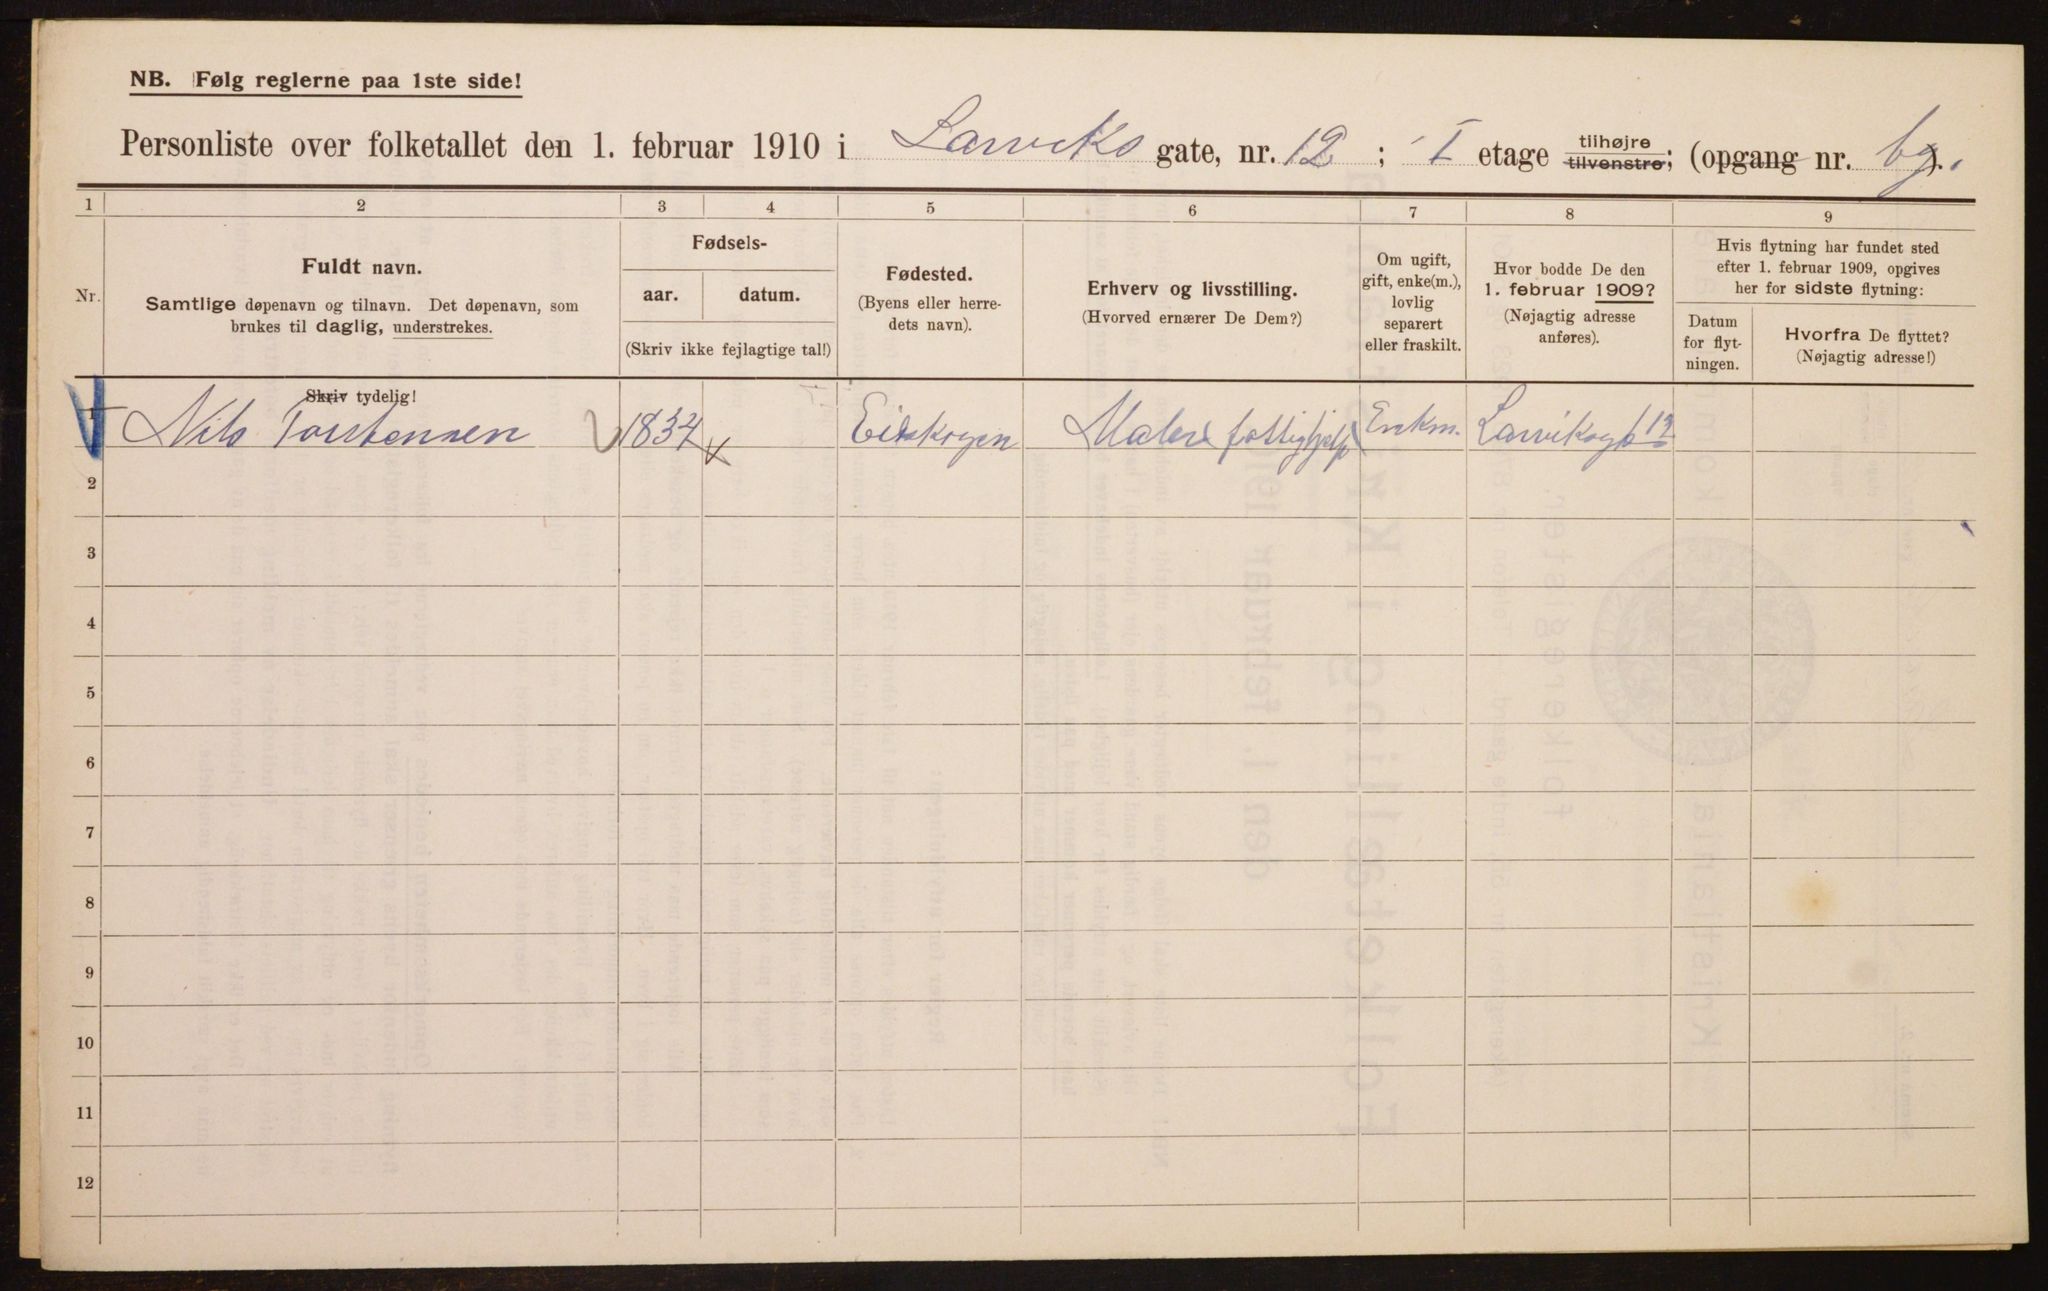 NB. Følg reglerne paa 1ste side!
Personliste over folketallet den 1. februar 1910 i Larviks gate, nr. 12 ; I etage tilhøjre tilvenstre; (opgang nr. bg.).
1 2 3 4 5 6 7 8 9
Nr.
Fuldt navn.
Samtlige døpenavn og tilnavn. Det døpenavn, som
brukes til daglig, understrekes.
Fødsels-
aar. datum.
(Skriv ikke fejlagtige tal!)
Fødested.
(Byens eller herre-
dets navn).
Erhverv og livsstilling.
(Hvorved ernærer De Dem?)
Om ugift,
gift, enke(m.),
lovlig
separert
eller fraskilt.
Hvor bodde De den
1. februar 1909?
(Nøjagtig adresse
anføres).
Hvis flytning har fundet sted
efter 1. februar 1909, opgives
her for sidste flytning:
Datum
for flyt-
ningen.
Hvorfra De flyttet?
(Nøjagtig adresse!)
Skriv tydelig!
1 Nils Torstensen 1834 Eidskogen Maler (fattighjelp) Enkm. Larviksgt 12
2
3
4
5
6
7
8
9
10
11
12